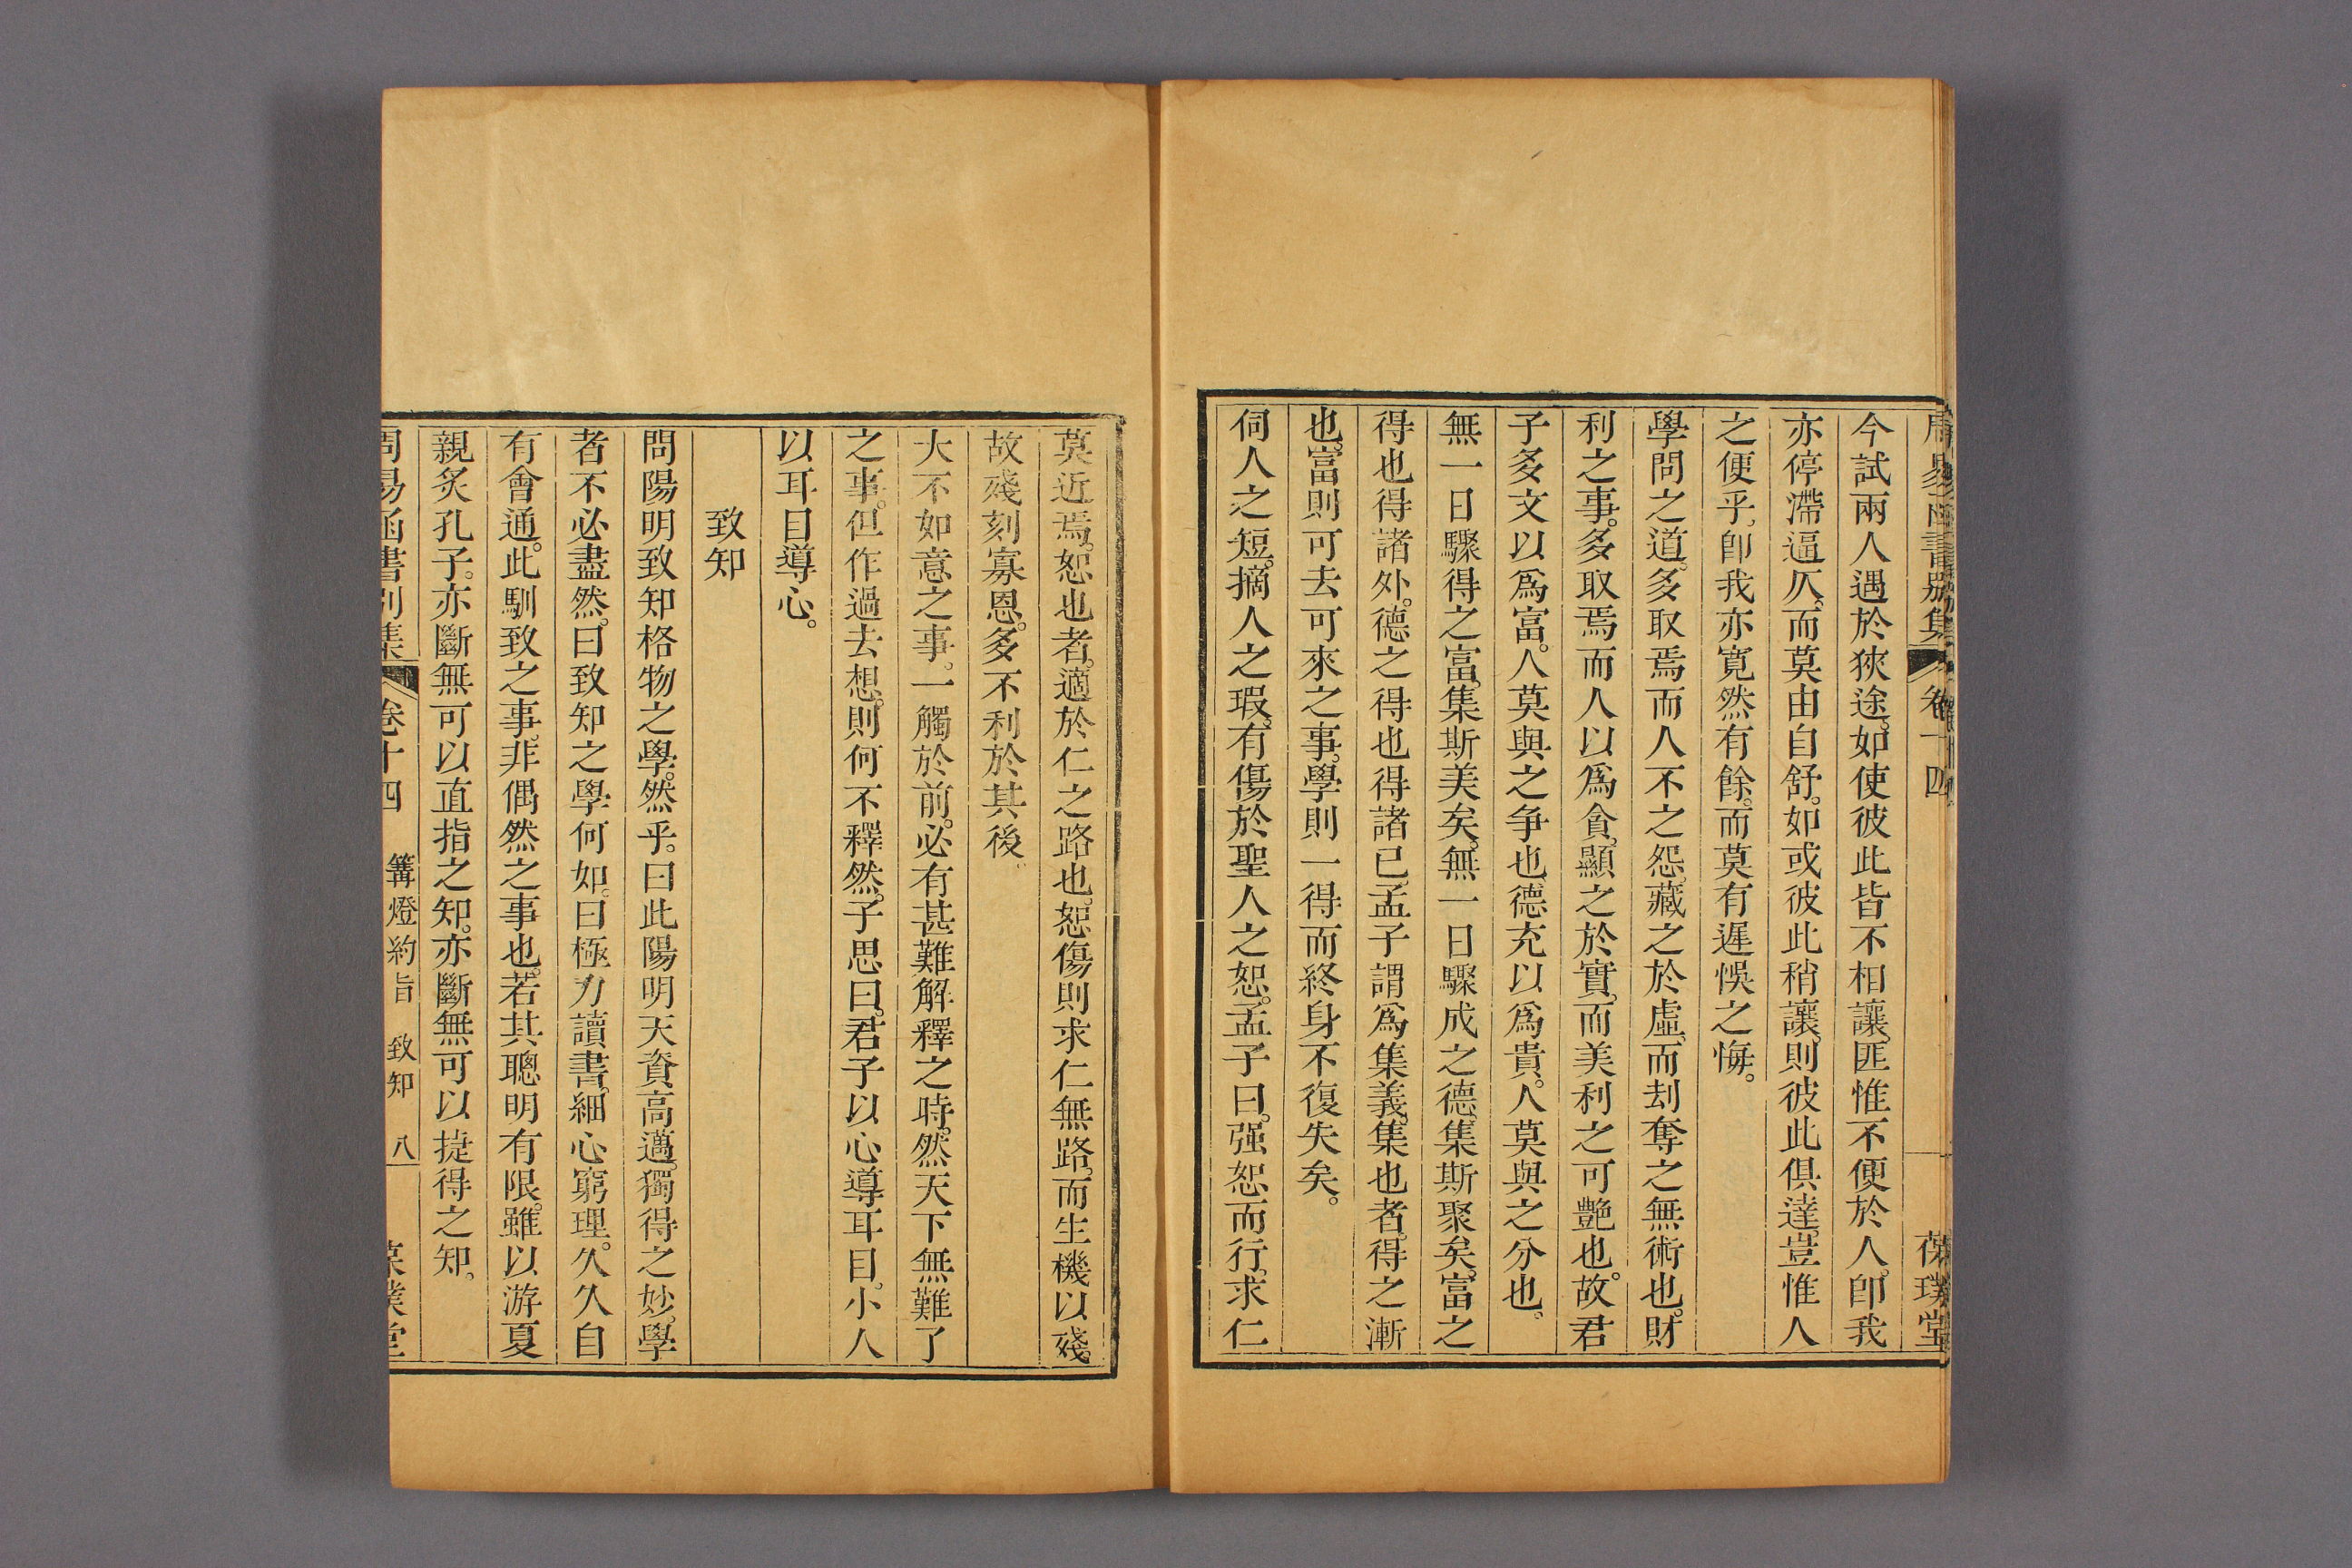 周易函書別集 卷十四 葆璞堂
今試兩人遇於狹途。如使彼此皆不相讓。匪惟不便於人。卽我
亦停滯逼仄。而莫由自舒。如或彼此稍讓。則彼此俱達。豈惟人
之便乎。卽我亦寬然有餘。而莫有遲悞之悔。
學問之道。多取焉而人不之怨。藏之於虛。而刦奪之無術也。財
利之事。多取焉而人以爲貪。顯之於實。而美利之可艷也。故君
子多文以爲富。人莫與之争也。德充以爲貴。人莫與之分也。
無一日驟得之富。集斯美矣。無一日驟成之德。集斯聚矣。富之
得也得諸外。德之得也得諸已。孟子謂爲集義。集也者。得之漸
也。富則可去可來之事。學則一得而終身不復失矣。
伺人之短。摘人之瑕。有傷於聖人之恕。孟子曰。强恕而行。求仁
莫近焉。恕也者。適於仁之路也。恕傷則求仁無路。而生機以殘。
故殘刻寡恩。多不利於其後。
大不如意之事。一觸於前。必有甚難解釋之時。然天下無難了
之事。但作過去想。則何不釋然。子思曰。君子以心導耳目。小人
以耳目導心。
致知
問陽明致知格物之學。然乎。曰此陽明天資高邁。獨得之妙。學
者不必盡然。曰致知之學何如。曰極力讀書。細心窮理。久久自
有會通。此馴致之事。非偶然之事也。若其聰明有限。雖以游夏
親炙孔子。亦斷無可以直指之知。亦斷無可以捷得之知。
周易函書別集 卷十四 篝燈約旨 致知 八 葆璞堂